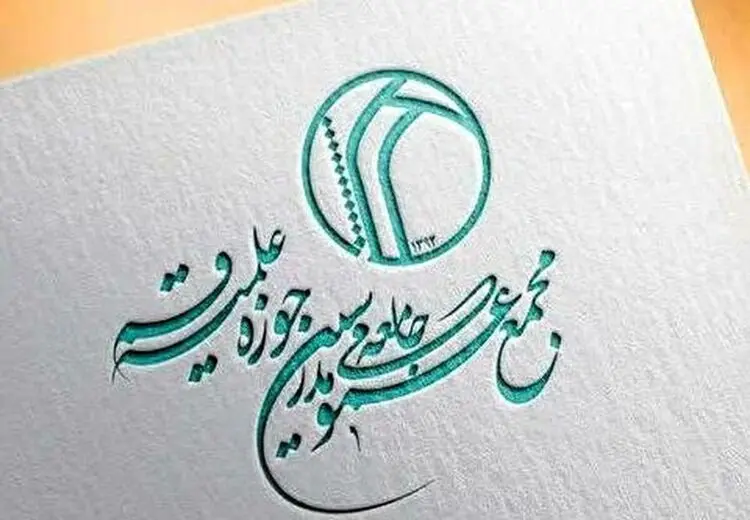 ۱۳۹۳
مجمع عمومی جامعه مدرسین حوزه علمیه قم